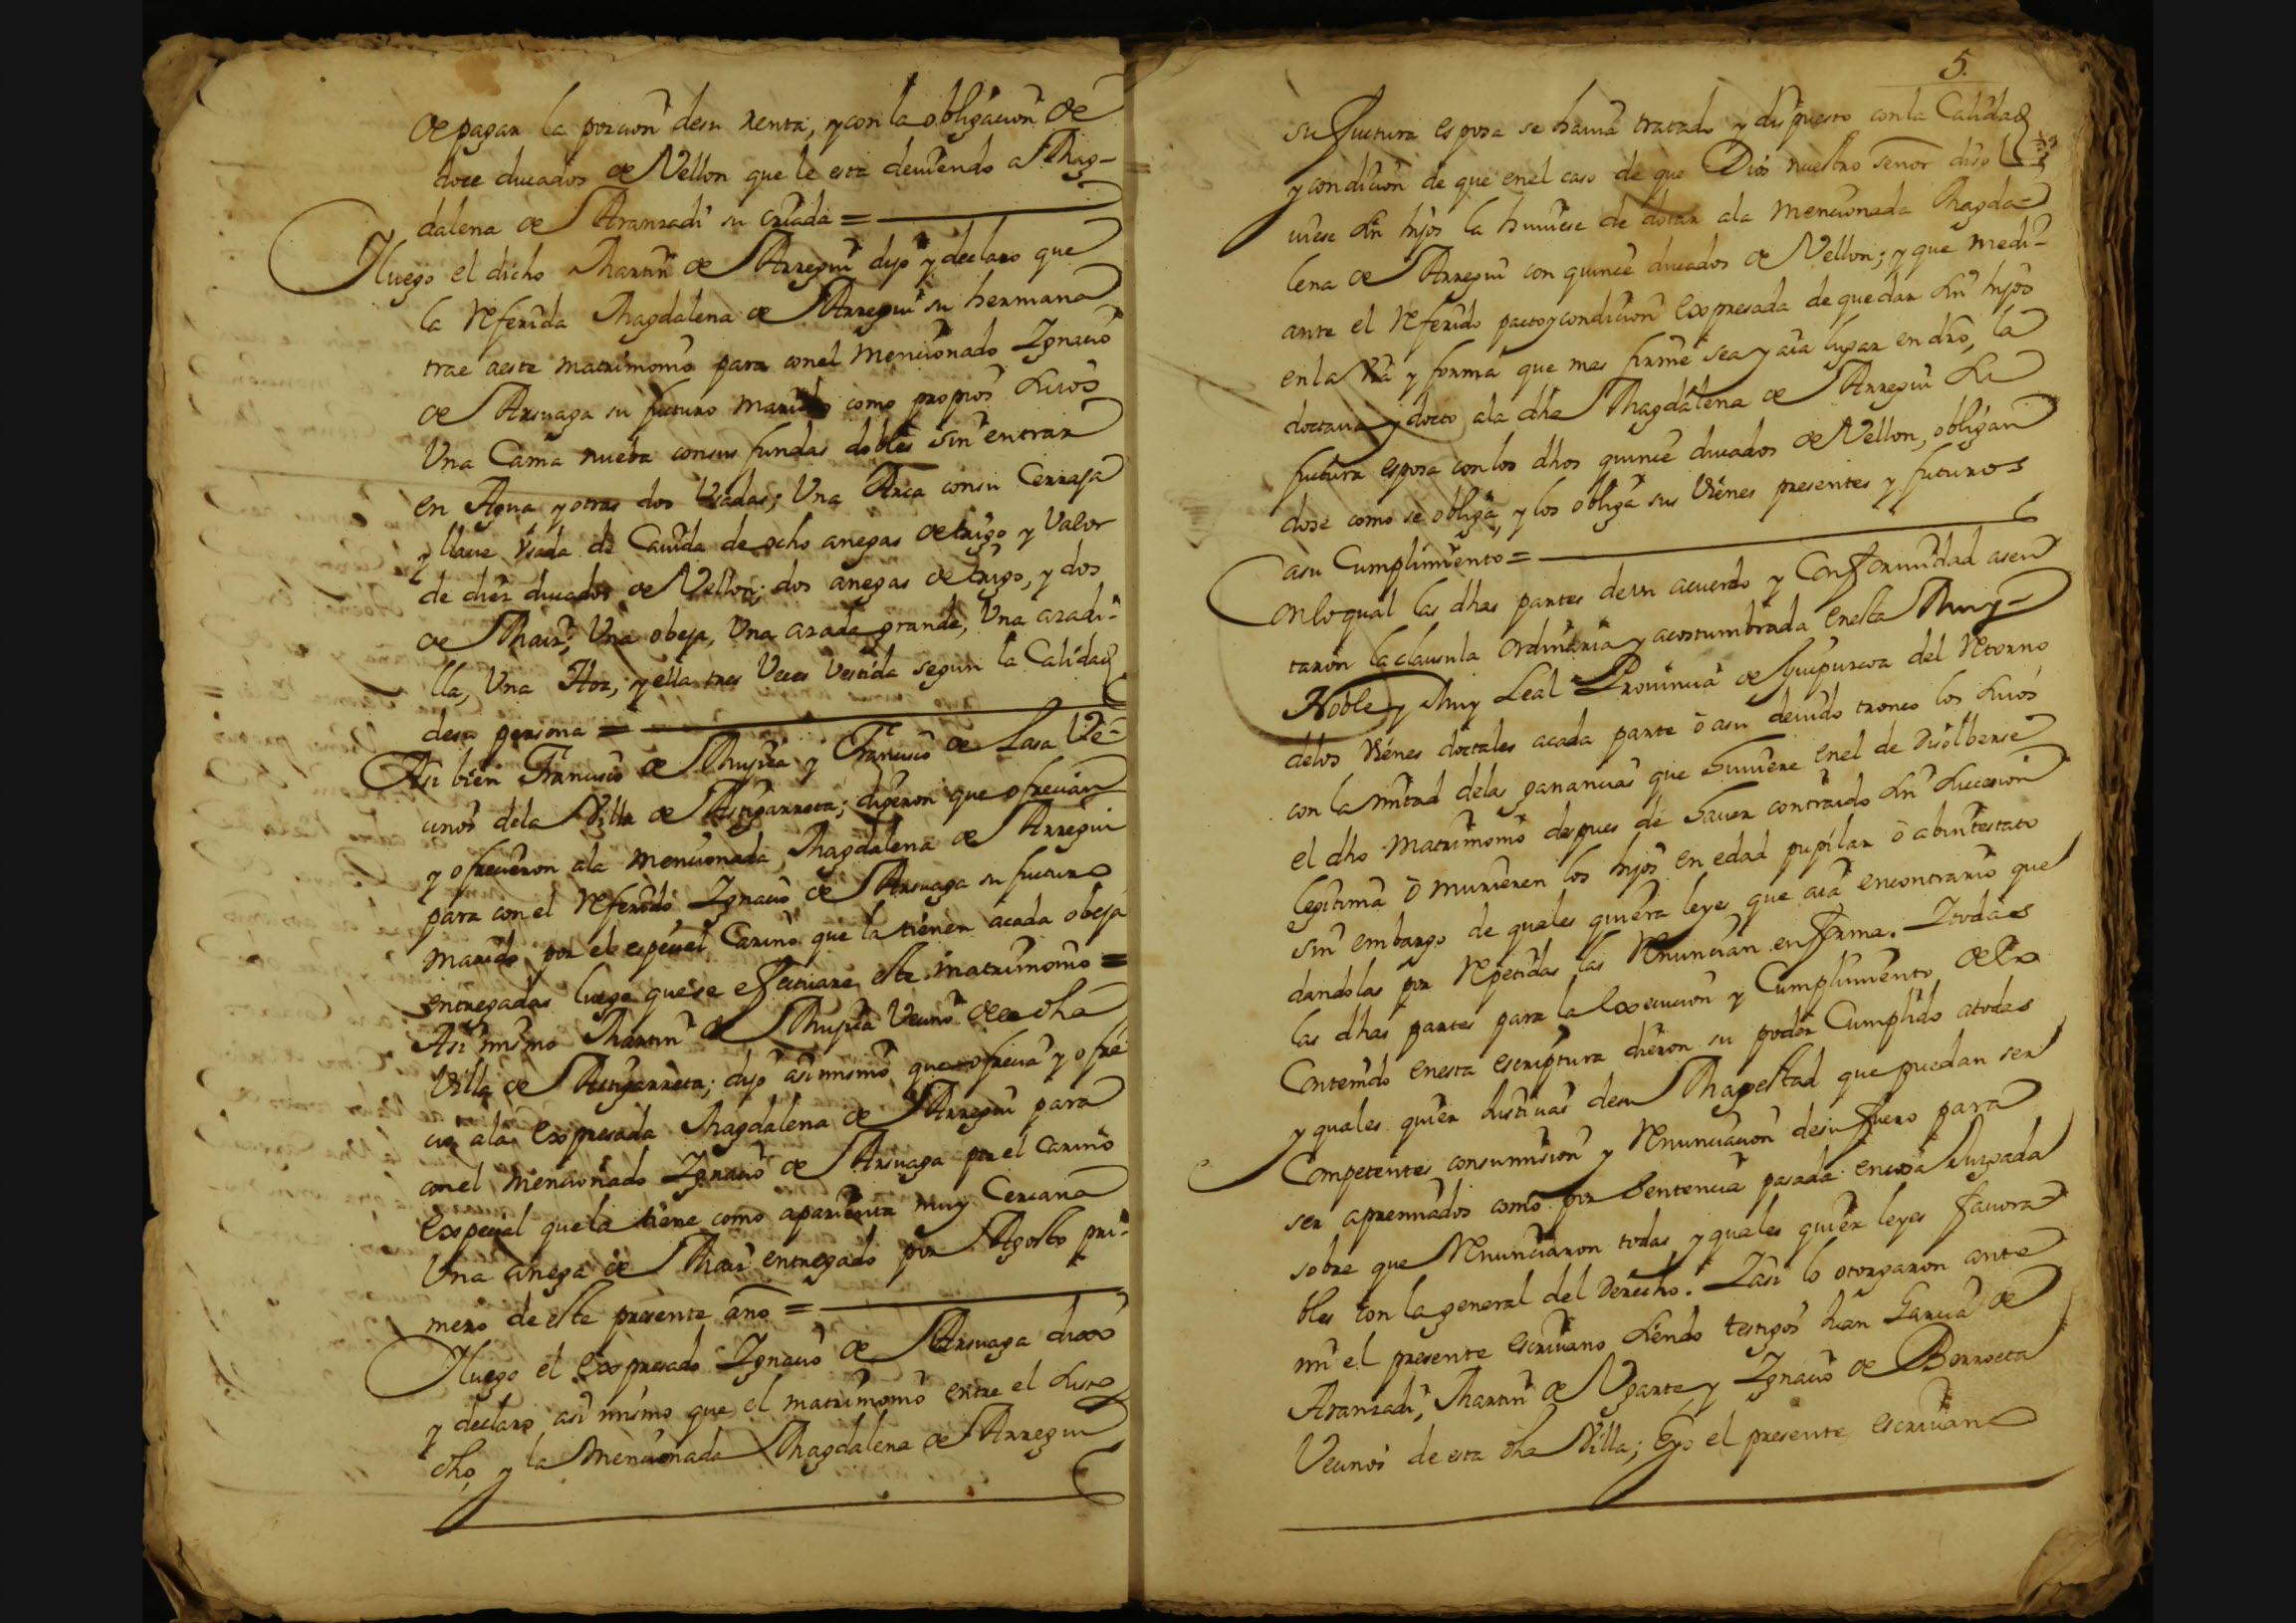 de pagar la porcion desu renta, y con la obligacion de
doce ducados de Vellon que le esta deviendo a Mag-
dalena de Aranzadi su criada =
Yluego el dicho Martin de Arregui dijo y declaro que
la referida Magdalena de Arregui su hermana
trae aeste matrimonio para conel mencionado Ygnacio
de Arsuaga su futuro marido como propios suios
Una Cama nueba consus fundas dobles sin entrar
en Agua y otras dos Usadas; Una Arca consu Cerraja
y llave Usada de Cavida de ocho anegas de trigo y Valor
de diez ducados de Vellon; dos anegas de trigo, y dos
de Maiz; Una obeja, Una azada grande, Una azadi-
lla, Una Hoz, y ella tres Veces Vestida segun la Calidad
desu persona =
Asi bien Francisco de Mujica y Francisco de Lasa Ve-
cinos dela Villa de Astigarreta; digeron que ofrecian
y ofrecieron ala mencionada Magdalena de Arregui
para con el referido Ygnacio de Arsuaga su futuro
marido por el especial Cariño que la tienen acada obeja
entregadas luego quese efectuare este matrimonio =
Asi mismo Martin de Mujica Vecino de la dha
Villa de Astigarreta; dijo asi mismo que ofrecia y ofre
cio ala expresada Magdalena de Arregui para
conel mencionado Ygnacio de Arsuaga por el cariño
especial quela tiene como aparienta muy Cercana
Una anega de Maiz entregado por Agosto pri-
mero de este presente año =
Yluego el expresado Ygnacio de Arsuaga dixo
y declaro asi mismo que el matrimonio entre el suso
dho, y la mencionada Magdalena de Arregui
5.
su fuctura esposa se havia tratado y dispuesto conla Calidad
y condicion de que enel caso de que Dios nuestro señor diso
viese sin hijos la huviese de dotar ala mencionada Magda-
lena de Arregui con quince ducados de Vellon; y que medi-
ante el referido pacto y condicion expresada de quedar sin hijos
en la via y forma que mas firme sea y aia lugar en dro, la
doctava y docto ala dha Magdalena de Arregui su
futura esposa con los dhos quince ducados de Vellon, obligan
dose como se obliga, y los obliga sus vienes presentes y futuros
asu Cumplimiento =
Conloqual las dhas partes deun acuerdo y Conformidad asen
taron la clausula ordinaria y acostumbrada enesta Muy-
Noble y Muy Leal Provincia de Guipuzcoa del Retorno
delos vienes doctales acada parte ò asu devido tronco los suios
con la mitad delas ganancias que huviere enel de disolberse
el dho matrimonio despues de haver contraido sin sucesion
legitima ò murieren los hijos en edad pupilar ò abintestato
sin embargo de quales quiera leyes que aia encontrario que
dandolas por repetidas las renuncian en forma. Ytodas
las dhas partes para la execucion y Cumplimiento delo
Contenido enesta escriptura dieron su poder Cumplido atodas
y quales quier Justicias desu Magestad que puedan ser
Competentes consumision y renunciacion desu fuero para
ser apremiados como por Sentencia pasada encosa Juzgada
sobre que renunciaron todas y quales quier leyes favora
bles con la general del derecho. Yasi lo otorgaron ante
mi el presente escrivano siendo testigos Juan Garcia de
Aranzadi, Martin de Ugarte, y Ygnacio de Borroeta
Vecinos de esta dha Villa; Eyo el presente escrivano